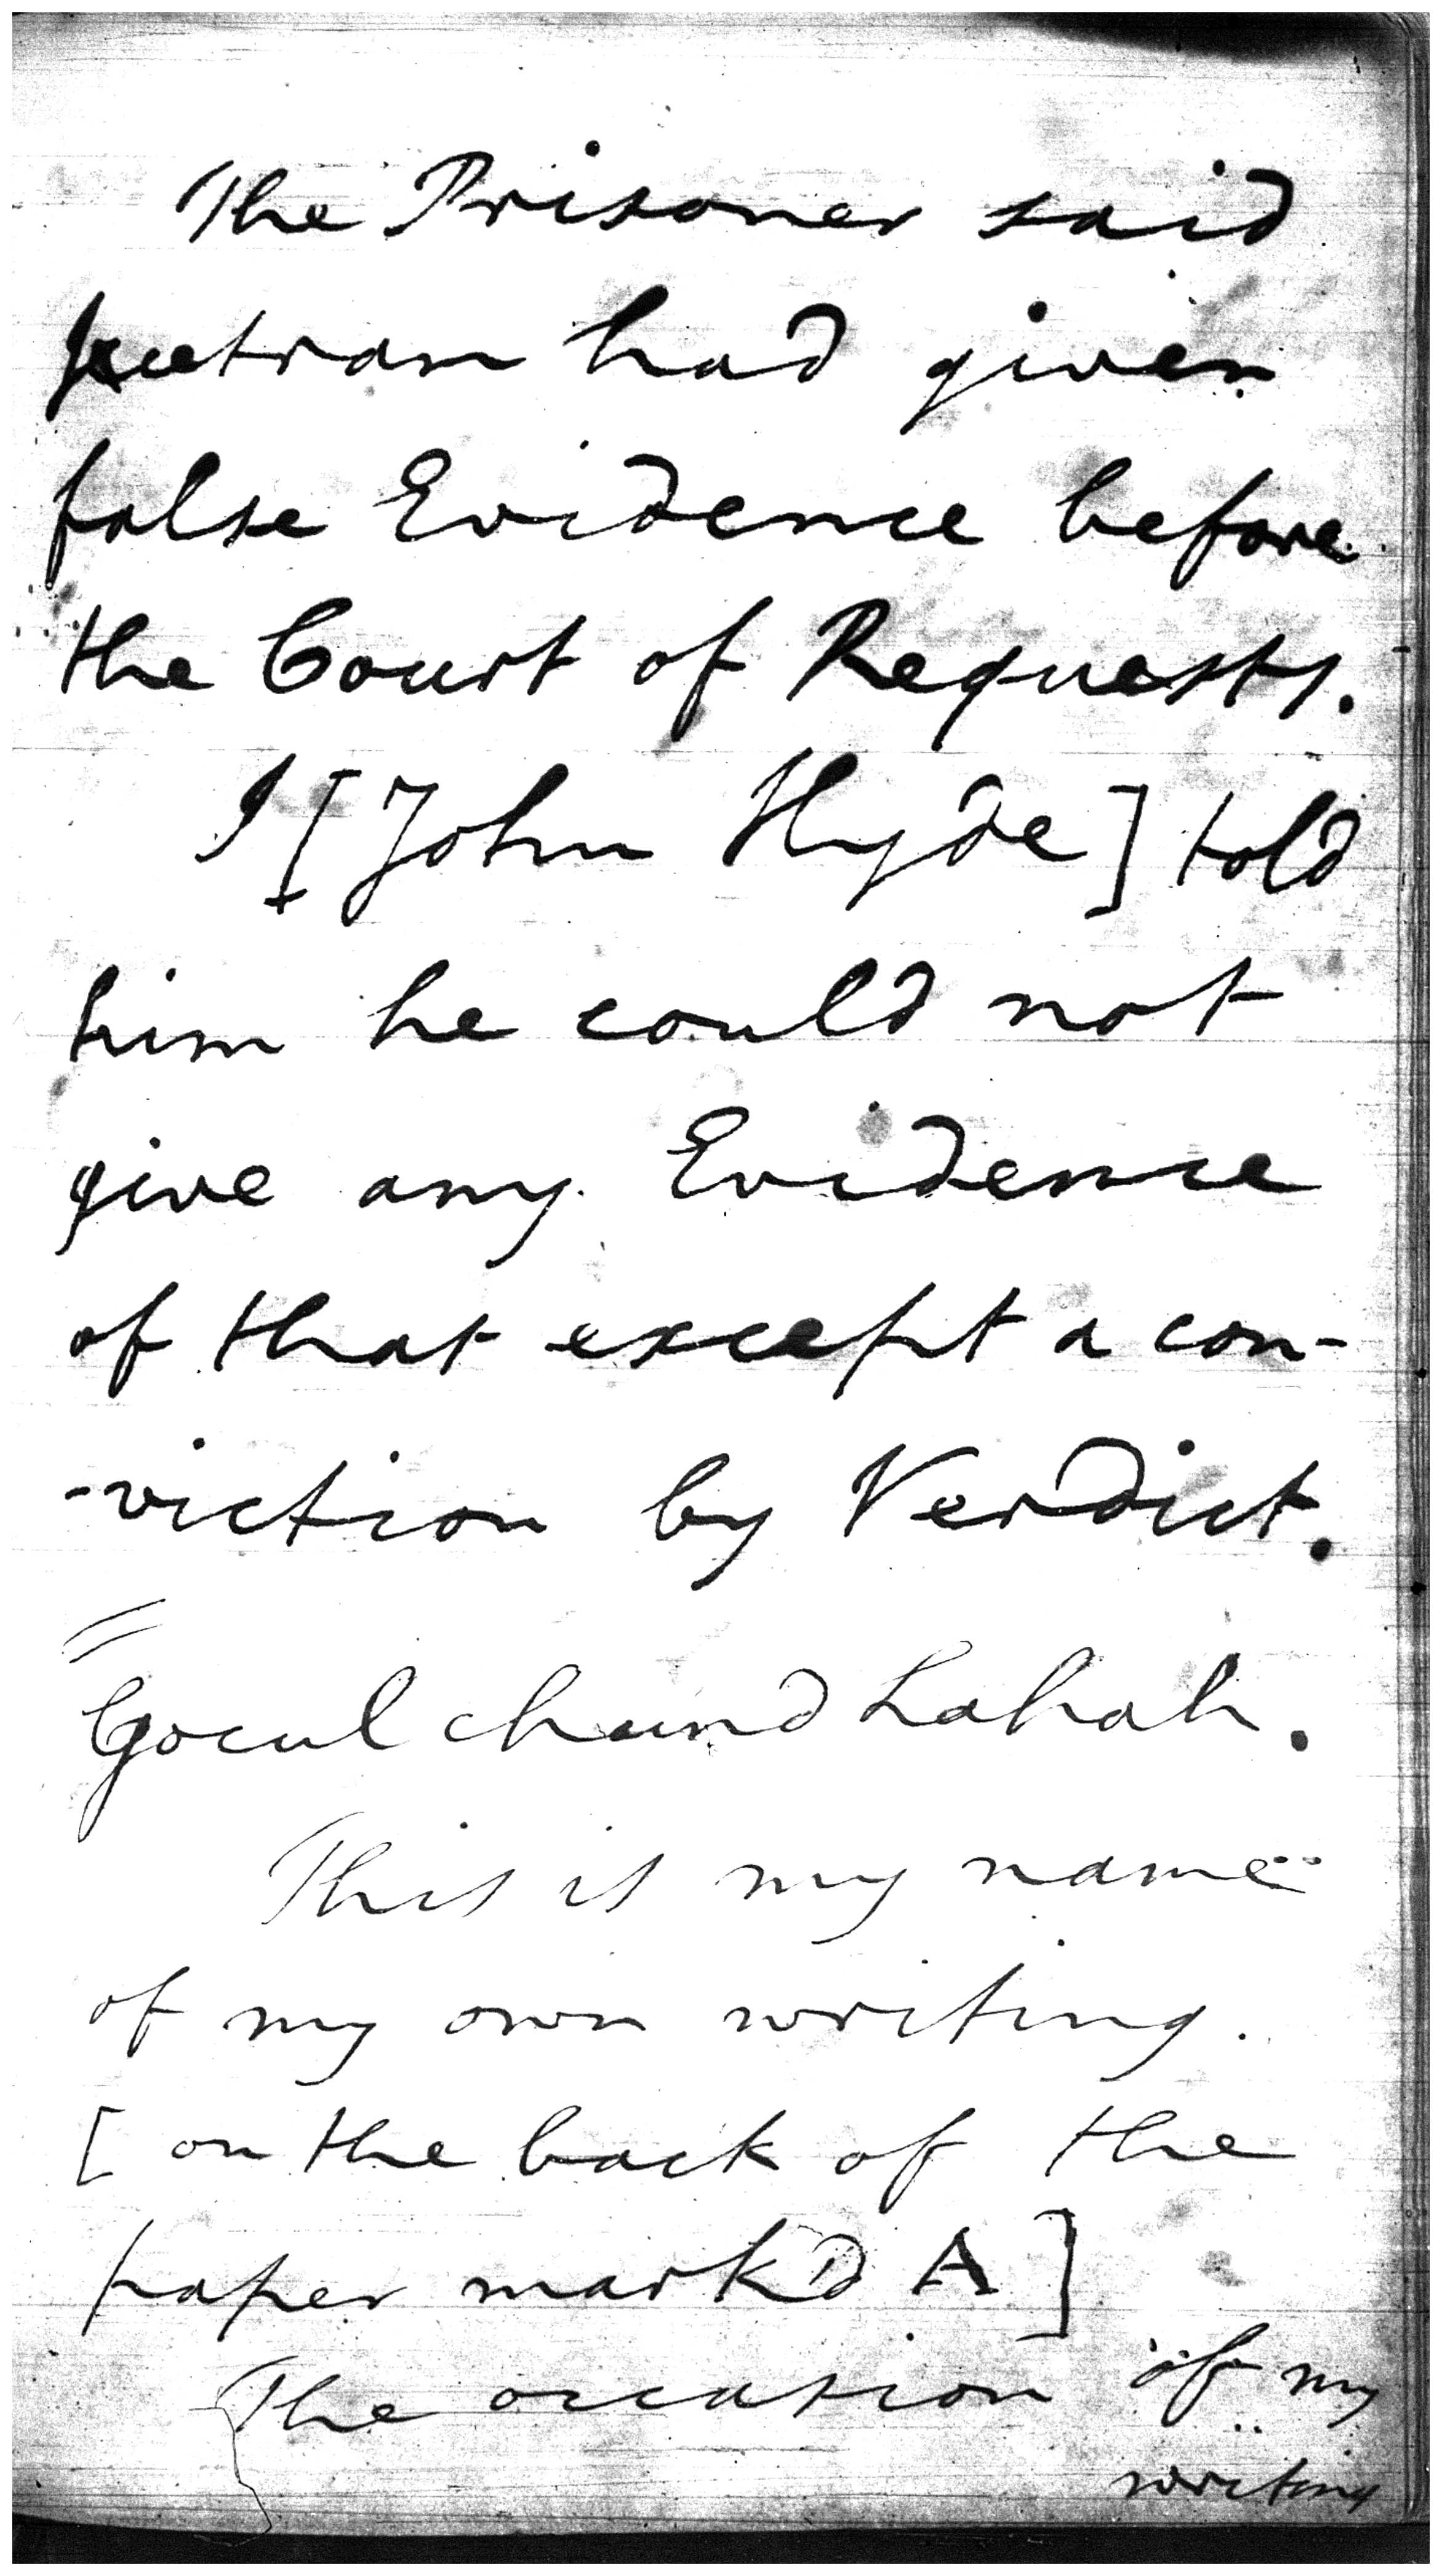 The Prisoner said
had given
false Evidence before
the Court of Requests.
I [John Hyde] told
him he could not
give any Evidence
of that except a con-
-viction by Verdict.
Gocul chund Lahah.
This is my name
of my own writing.
[on the back of the
paper mark'd A]
The occasion of my
writing